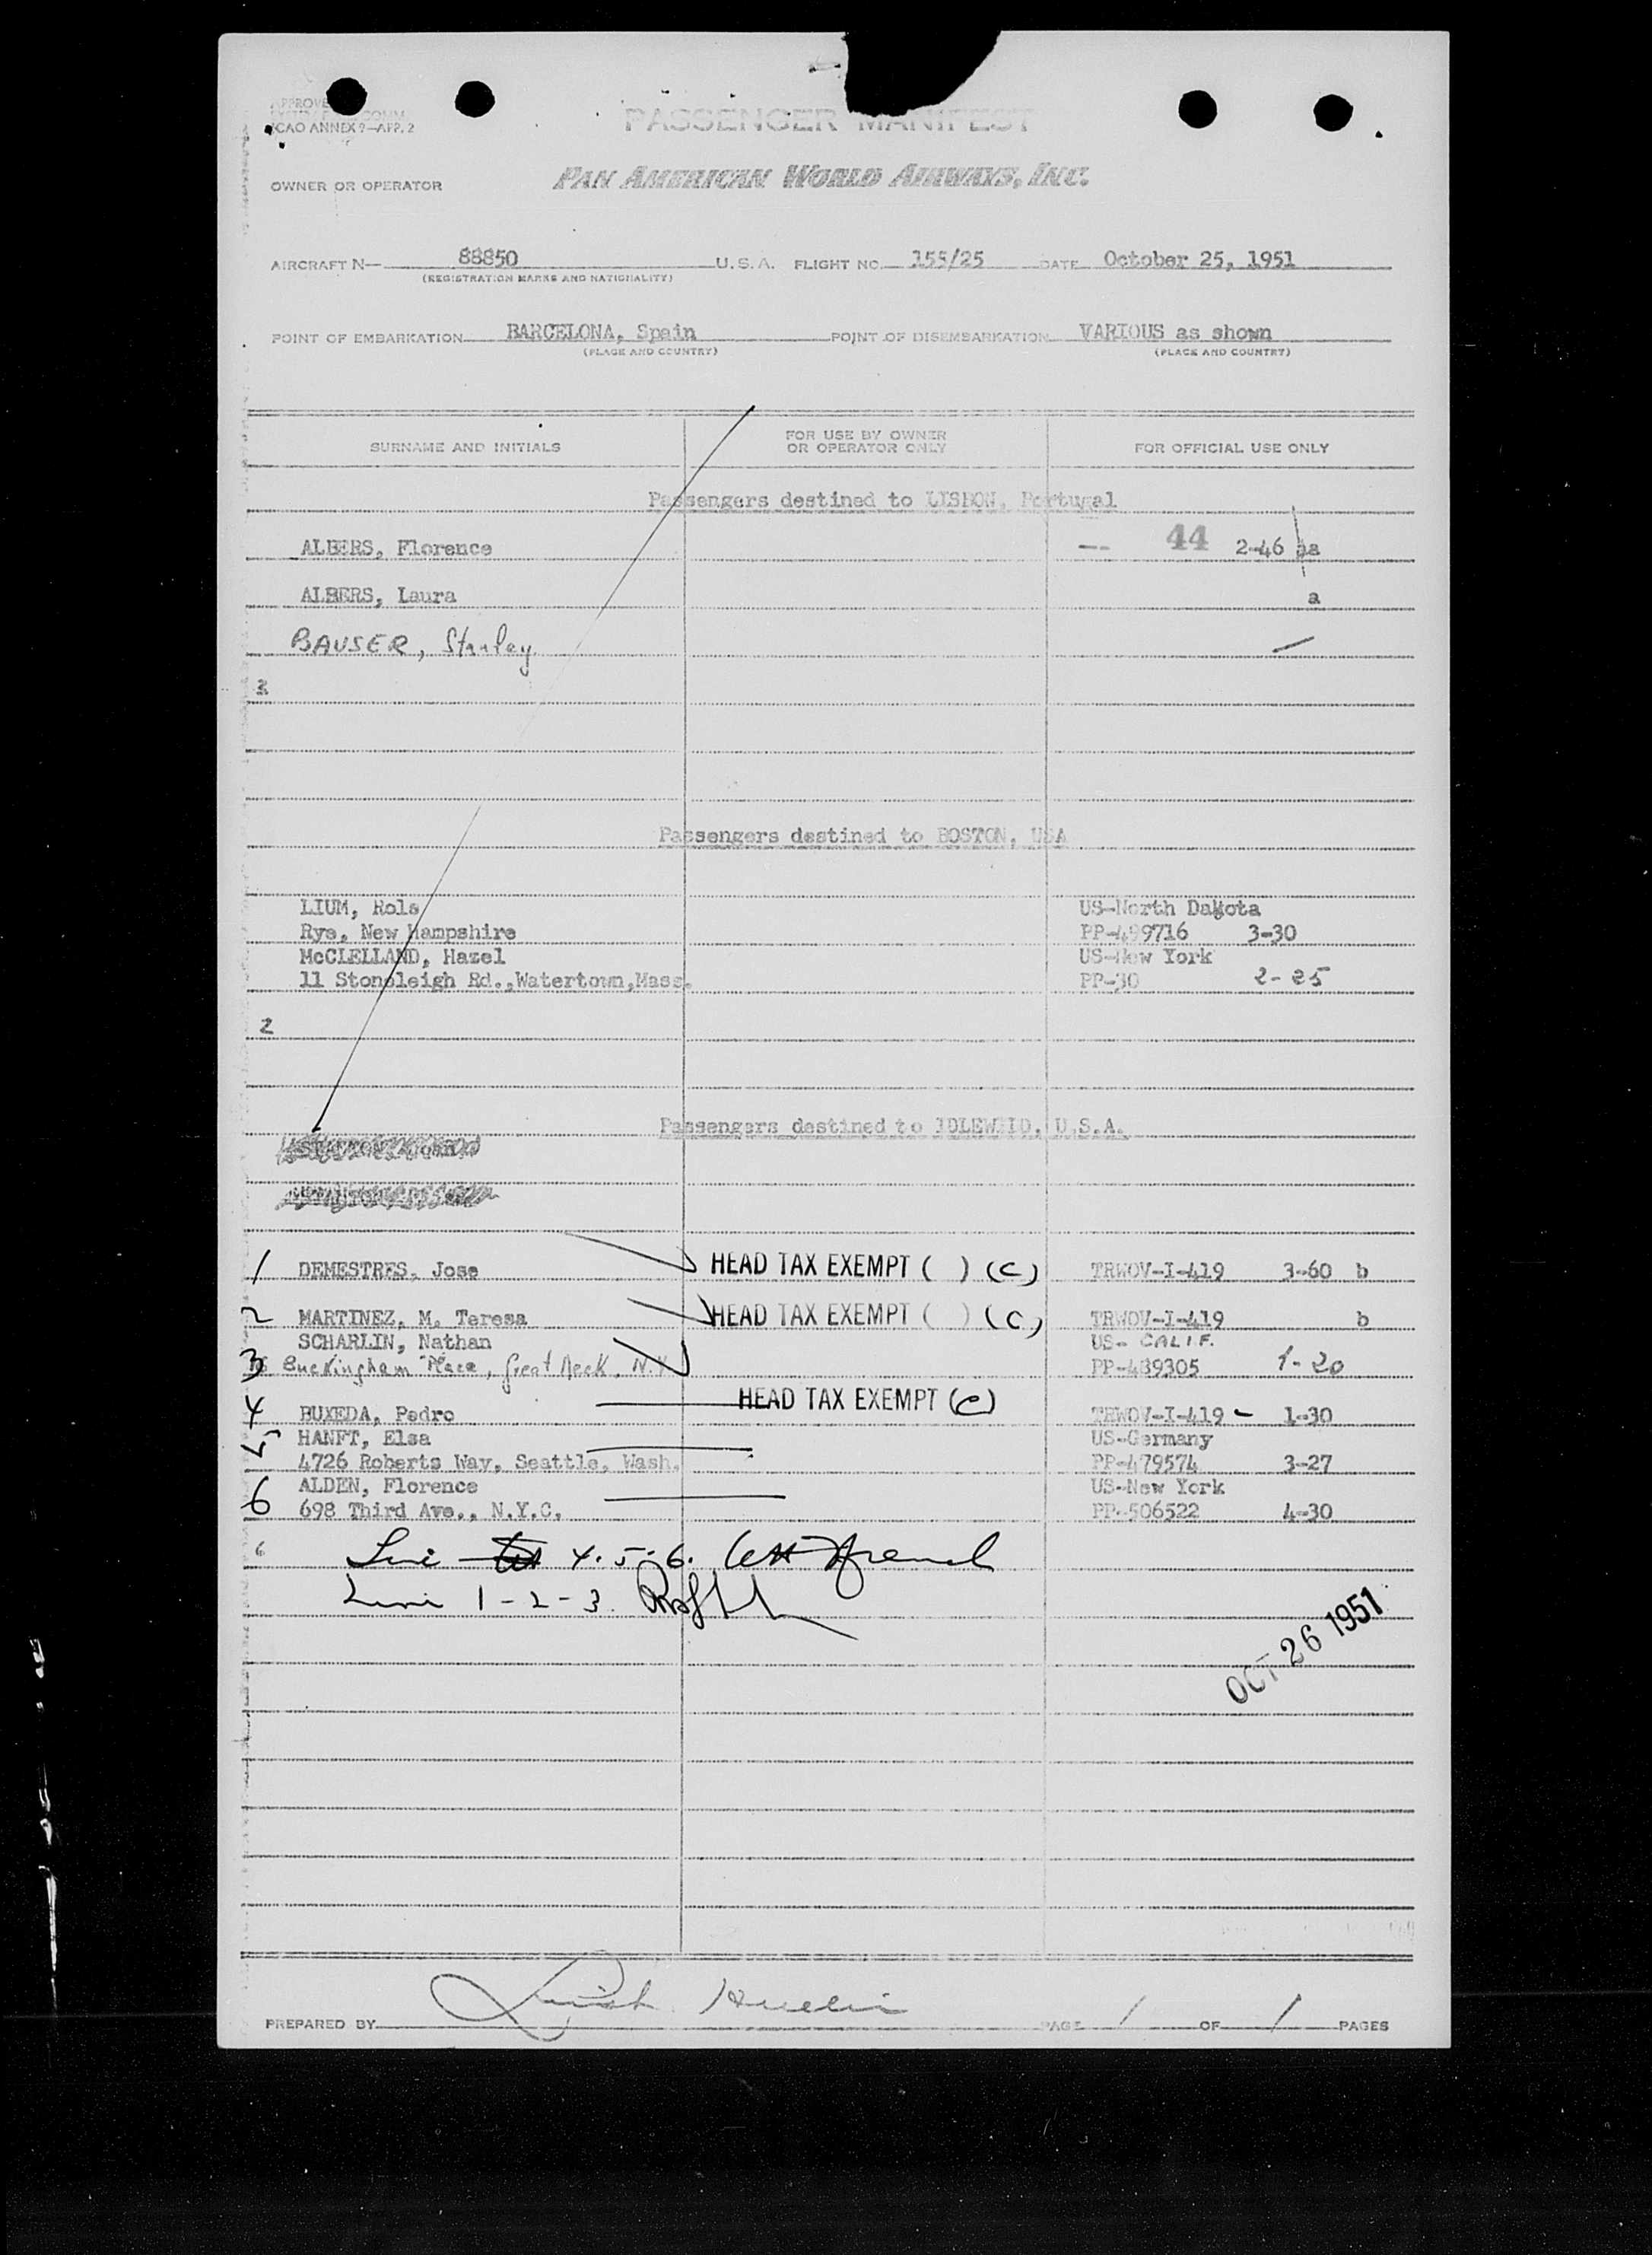 ICAO ANNEX 9—APP. 2
PASSENGER MANIFEST
OWNER OR OPERATOR PAN AMERICAN WORLD AIRWAYS, INC.
AIRCRAFT N— 88850 U.S.A. FLIGHT NO. 155/25 DATE October 25, 1951
(REGISTRATION MARKS AND NATIONALITY)
POINT OF EMBARKATION BARCELONA, Spain POINT OF DISEMBARKATION VARIOUS as shown
(PLACE AND COUNTRY) (PLACE AND COUNTRY)
SURNAME AND INITIALS FOR USE BY OWNER OR OPERATOR ONLY FOR OFFICIAL USE ONLY
Passengers destined to LISBON, Portugal
ALBERS, Florence -- 44 2-46 a
ALBERS, Laura a
BAUSER, Stanley
3
Passengers destined to BOSTON, USA
LIUM, Rols US-North Dakota
Rye, New Hampshire PP-499716 3-30
McCLELLAND, Hazel US-New York
11 Stoneleigh Rd.,Watertown,Mass. PP-30 2-25
2
Passengers destined to IDLEWILD, U.S.A.
1 DEMESTRES, Jose HEAD TAX EXEMPT ( ) (C) TRWOV-I-419 3-60 b
2 MARTINEZ, M. Teresa HEAD TAX EXEMPT ( ) (C) TRWOV-I-419 b
SCHARLIN, Nathan US- CALIF.
3 Buckingham Place, Great Neck, N.Y. PP-489305 1-20
4 BUXEDA, Pedro HEAD TAX EXEMPT (C) TRWOV-I-419 - 1-30
5 HANFT, Elsa US-Germany
4726 Roberts Way, Seattle, Wash. PP-479574 3-27
ALDEN, Florence US-New York
6 698 Third Ave., N.Y.C. PP-506522 4-30
6 4. 5. 6.
1 - 2 - 3
OCT 26 1951
PREPARED BY PAGE 1 OF 1 PAGES